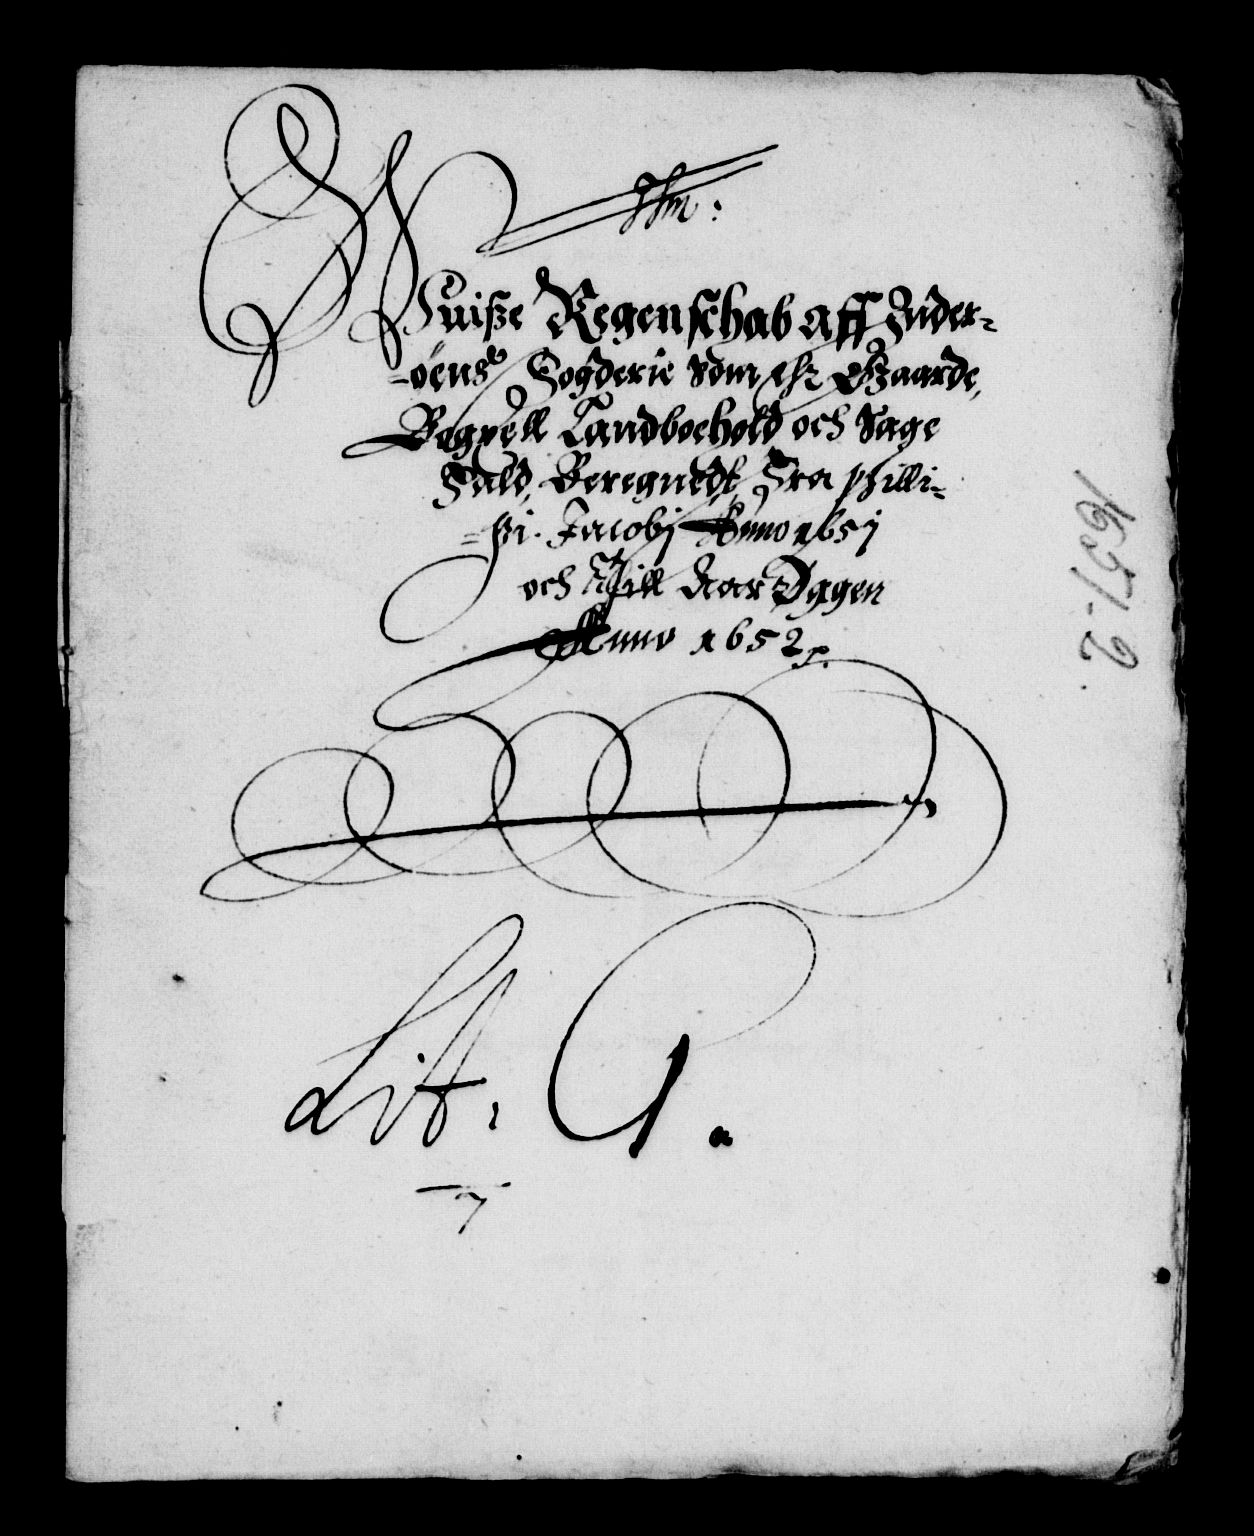 Wuiße Regenschab aff Inder-
-öens Fogderie Som ehr Gaarde,
Bogxell Landboehold och Sage
Fald, Beregnedt, Fra phili-
=pi. Jacobj Anno 1651
och Till Aar Dagen
Anno 1652
Lit: G.
7
1651-2